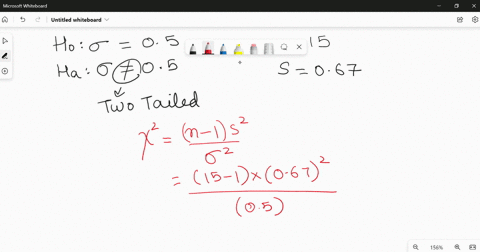 Microsoft Whiteboard
Untitled whiteboard
H₀: σ = 0.5
15
Ha: σ ≠ 0.5
S = 0.67
Two Tailed
χ² = (n-1) S² / σ²
= (15-1) × (0.67)² / (0.5)
156%